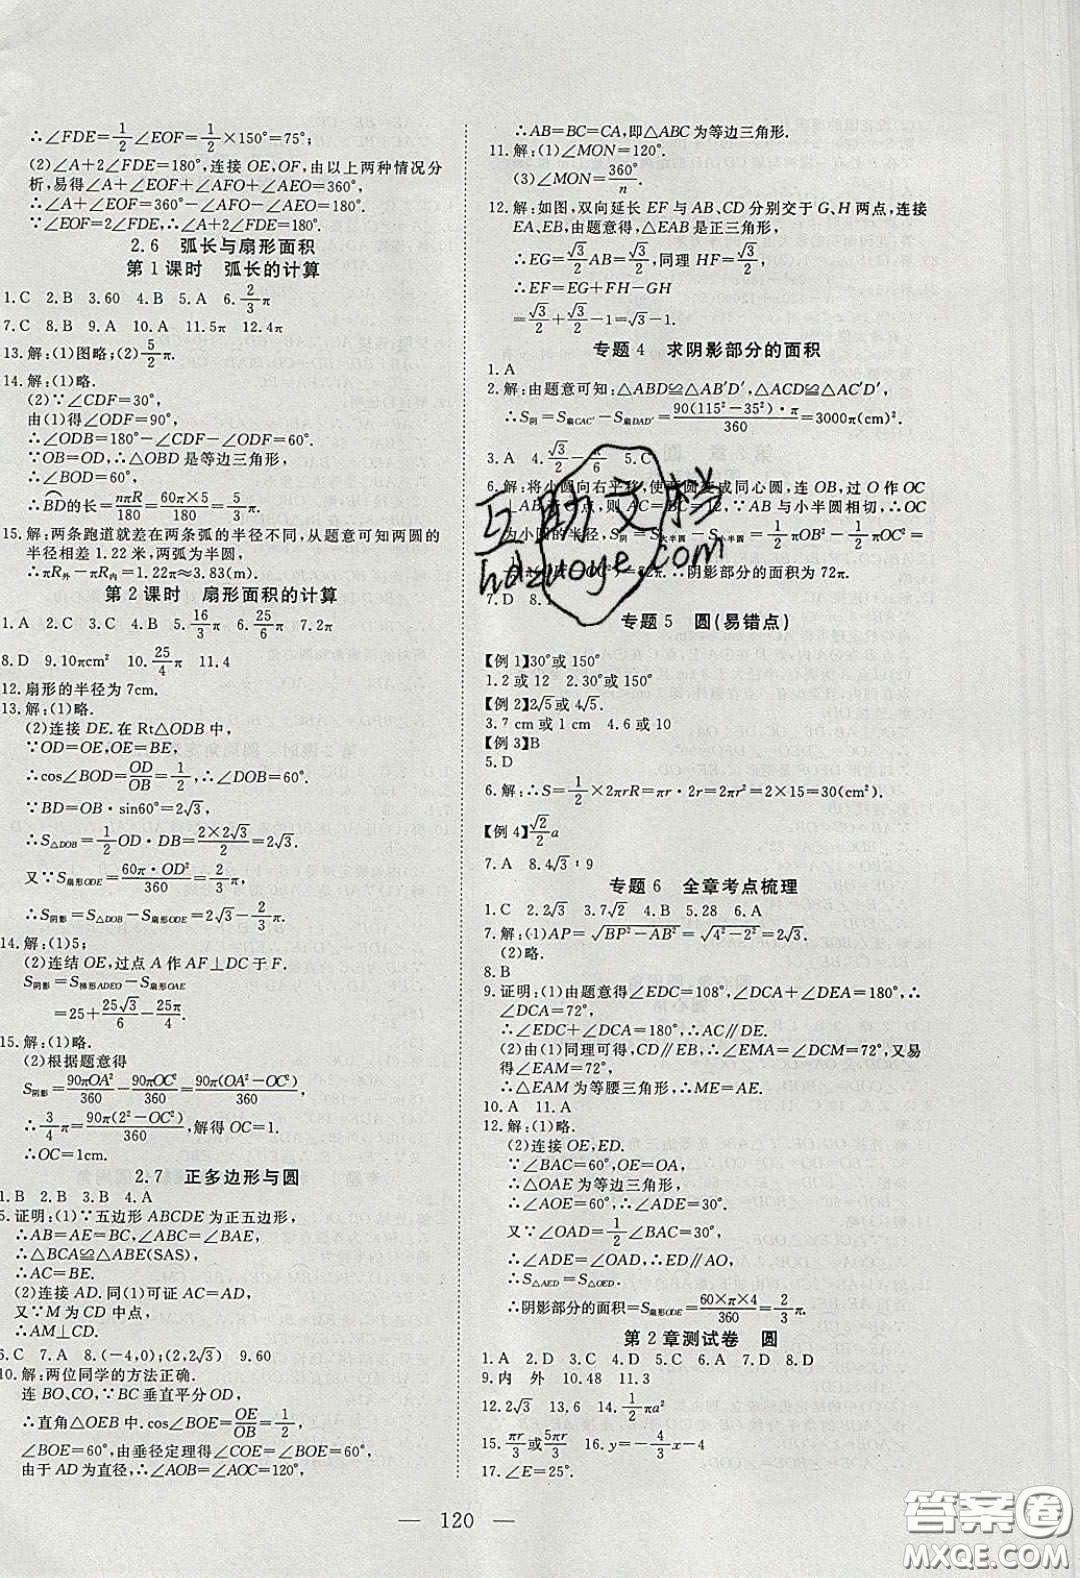 ∴∠FDE=1/2∠EOF=1/2×150°=75°;
(2)∠A+2∠FDE=180°,连接OE,OF,由以上两种情况分
析,易得∠A+∠EOF+∠AFO+∠AEO=360°,
∴∠A+∠EOF=360°-∠AFO-∠AEO=180°.
∵∠EOF=2∠FDE,∴∠A+2∠FDE=180°.
2.6 弧长与扇形面积
第1课时 弧长的计算
1.C 2.B 3.60 4.B 5.A 6.2/3π
7.C 8.B 9.A 10.A 11.5π 12.4π
13.解:(1)图略;(2)5/2π.
14.解:(1)略.
(2)∵∠CDF=30°,
由(1)得∠ODF=90°,
∴∠ODB=180°-∠ODF-∠CDF=60°.
∵OB=OD,∴△OBD是等边三角形,
∴∠BOD=60°.
∴BD的长=nπR/180=60π×5/180=5/3π.
15.解:两条跑道就差在两条弧的半径不同,从题意可知两圆的
半径相差1.22米,两弧为半圆,
∴πR外-πR内=1.22π≈3.83(m).
第2课时 扇形面积的计算
1.A 2.C 3.C 4.B 5.16/3π 6.25/6π 7.2π
8.D 9.10πcm² 10.25/4π 11.4
12.扇形的半径为7cm.
13.解:(1)略.
(2)连接DE.在Rt△ODB中,
∵OD=OE,OE=BE,
∴cos∠BOD=OD/OB=1/2,∴∠DOB=60°.
∵BD=OB·sin60°=2√3,
∴S△DOB=1/2OD·DB=2×2√3/2=2√3.
又∵S扇形ODE=60π·OD²/360=2/3π,
∴S阴影=S△DOB-S扇形ODE=2√3-2/3π.
14.解:(1)5;
(2)连结OE,过点A作AF⊥DC于F.
S阴影=S梯形ADEO-S扇形OAE
=25+25√3/6-25/4π.
15.解:(1)略.
(2)根据题意得
S阴影=90πOA²/360-90πOC²/360=90π(OA²-OC²)/360,
∴3/4π=90π(2²-OC²)/360,解得OC=1.
∴OC=1cm.
2.7 正多边形与圆
1.B 2.B 3.B 4.A
5.证明:(1)∵五边形ABCDE为正五边形,
∴AB=AE=BC,∠ABC=∠BAE,
∴△BCA≌△ABE(SAS).
∴AC=BE.
(2)连接AD.同(1)可证AC=AD,
又∵M为CD中点,
∴AM⊥CD.
6.C 7.A 8.(-4,0);(2,2√3) 9.60
10.解:两位同学的方法正确.
连BO,CO,∵BC垂直平分OD,
∴直角△OEB中.cos∠BOE=OE/OB=1/2,
∠BOE=60°,由垂径定理得∠COE=∠BOE=60°,
由于AD为直径,∴∠AOB=∠AOC=120°,
∴AB=BC=CA,即△ABC为等边三角形.
11.解:(1)∠MON=120°.
(3)∠MON=360°/n.
12.解:如图,双向延长EF与AB、CD分别交于G、H两点,连接
EA、EB,由题意得,△EAB是正三角形,
∴EG=√3/2AB=√3/2,同理HF=√3/2,
∴EF=EG+FH-GH
=√3/2+√3/2-1=√3-1.
专题4 求阴影部分的面积
1.A
2.解:由题意可知:△ABD≌△AB'D',△ACD≌△AC'D',
∴S阴=S扇CAC'-S扇DAD'=90(115²-35²)·π/360=3000π(cm)².
3.A 4.√3/2-π/6 5.C
6.解:将小圆向右平移,使两圆变成同心圆,连OB,过O作OC
⊥AB于C点,则AC=BC=12,AB与小半圆相切,∴OC
为小圆的半径,S阴=S大半圆-S小半圆=1/2πOB²-1/2πOC²=
π(OB²-OC²)=72π.∴阴影部分的面积为72π.
7.D 8.1
互助文档
hdzuoye.com
专题5 圆(易错点)
【例1】30°或150°
1.2或12 2.30°或150°
【例2】2√5或4√5.
3.7cm或1cm 4.6或10
【例3】B
5.D
6.解:∴S=1/2×2πrR=πr·2r=2πr·r=2×15=30(cm²).
【例4】√2/2a
7.A 8.4√3:9
专题6 全章考点梳理
1.C 2.2√3 3.7√2 4.B 5.28 6.A
7.解:(1)AP=√BP²-AB²=√4²-2²=2√3.
(2)略.
8.B
9.证明:(1)由题意得∠EDC=108°,∠DCA+∠DEA=180°,∴
∠DCA=72°,
∴∠EDC+∠DCA=180°,∴AC∥DE.
(2)由(1)同理可得,CD∥EB,∴∠EMA=∠DCM=72°,又易
得∠EAM=72°,
∴△EAM为等腰三角形,∴ME=AE.
10.A 11.A
12.解:(1)略.
(2)连接OE,ED.
∵∠BAC=60°,OE=OA,
∴△OAE为等边三角形,
∴∠AOE=60°,∴∠ADE=30°.
又∵∠OAD=1/2∠BAC=30°,
∴∠ADE=∠OAD,∴ED∥AO,
∴S△AED=S△OED.
∴阴影部分的面积=S扇形ODE=60×π×4/360=2/3π.
第2章测试卷 圆
1.A 2.D 3.C 4.C 5.B 6.C 7.D 8.D
9.内 外 10.48 11.3
12.2√3 13.6 14.1/2πa²
15.πr/3或5πr/3 16.y=-4/3x-4
17.∠E=25°.
— 120 —
答案圈
MXQE.COM